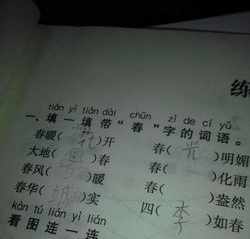 练
tián yi tián dài chūn zì de cí yǔ
一、填一填带“春”字的词语。
春暖(花)开 春(光)明媚
大地( )春 春( )化雨
春风( )暖 春( )盎然
春华( )实 四(季)如春
kàn tú lián yi lián
看图连一连